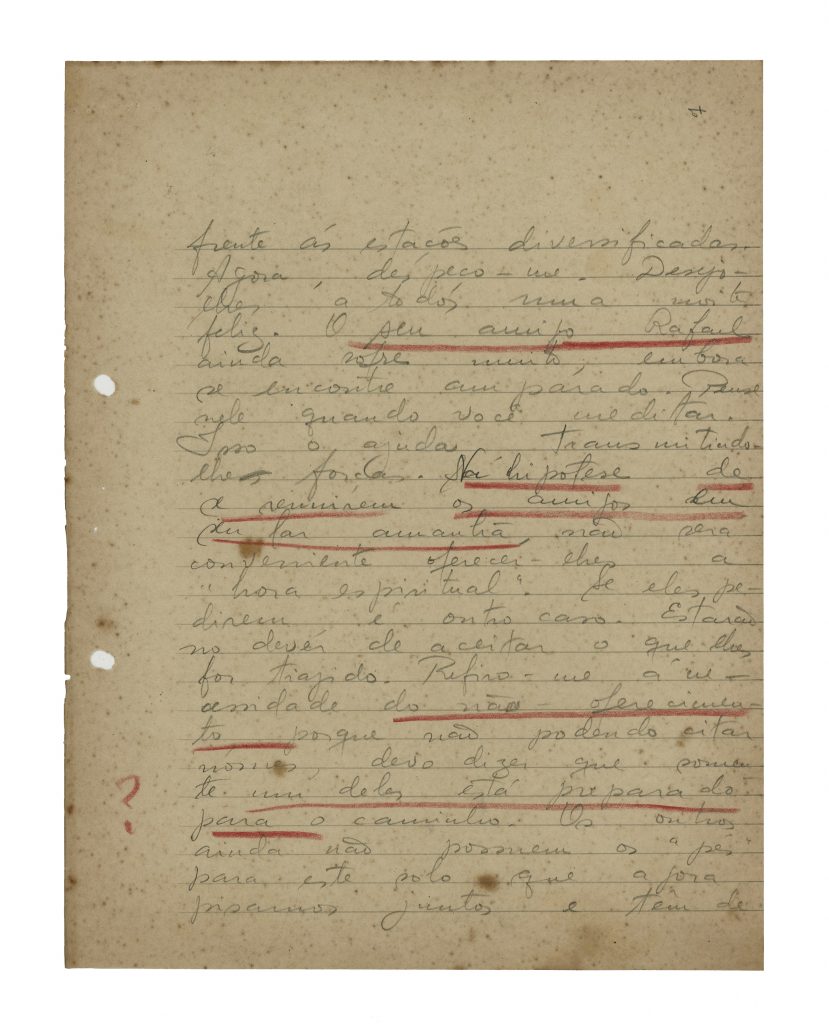 frente ás estações diversificadas.
Agora, despeço-me. Desejo-
lhes, a todos uma noite
feliz. O seu amigo Rafael
ainda sofre muito, embora
se encontre amparado. Pense
nele quando você meditar.
Isso o ajuda transmitindo-
lhe forças. Ná hipótese de
se reunirem os amigos em
seu lar amanhã não será
conveniente oferecer-lhes a
"hora espiritual". Se eles pe-
direm é outro caso. Estarão
no devêr de aceitar o que lhes
for trazido. Refiro-me á ne-
cessidade do não-oferecimen-
to porque não podendo citar
nómes, devo dizer que somen
te um deles está preparado
para o caminho. Os outros
ainda não possuem os "pés"
para este solo que agora
pisamos juntos e têm de
?